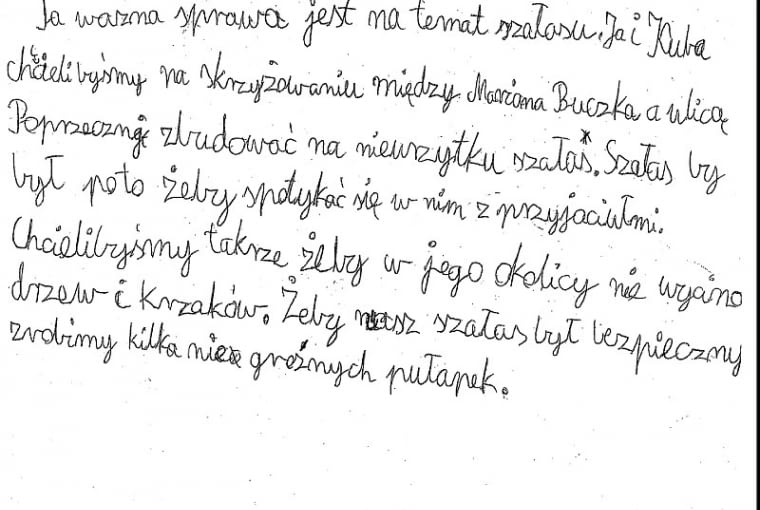 Ta ważna sprawa jest na temat szałasu. Ja i Kuba
chcielibyśmy na skrzyżowaniu między Mariana Buczka a ulicą
Poprzeczną zbudować na nieurzytku szałas. Szałas by
był poto żeby spotykać się w nim z przyjaciułmi.
Chcielibyśmy takrze żeby w jego okolicy nie wycino
drzew i krzaków. Żeby nasz szałas był bezpieczny
zrobimy kilka nie groźnych pułapek.